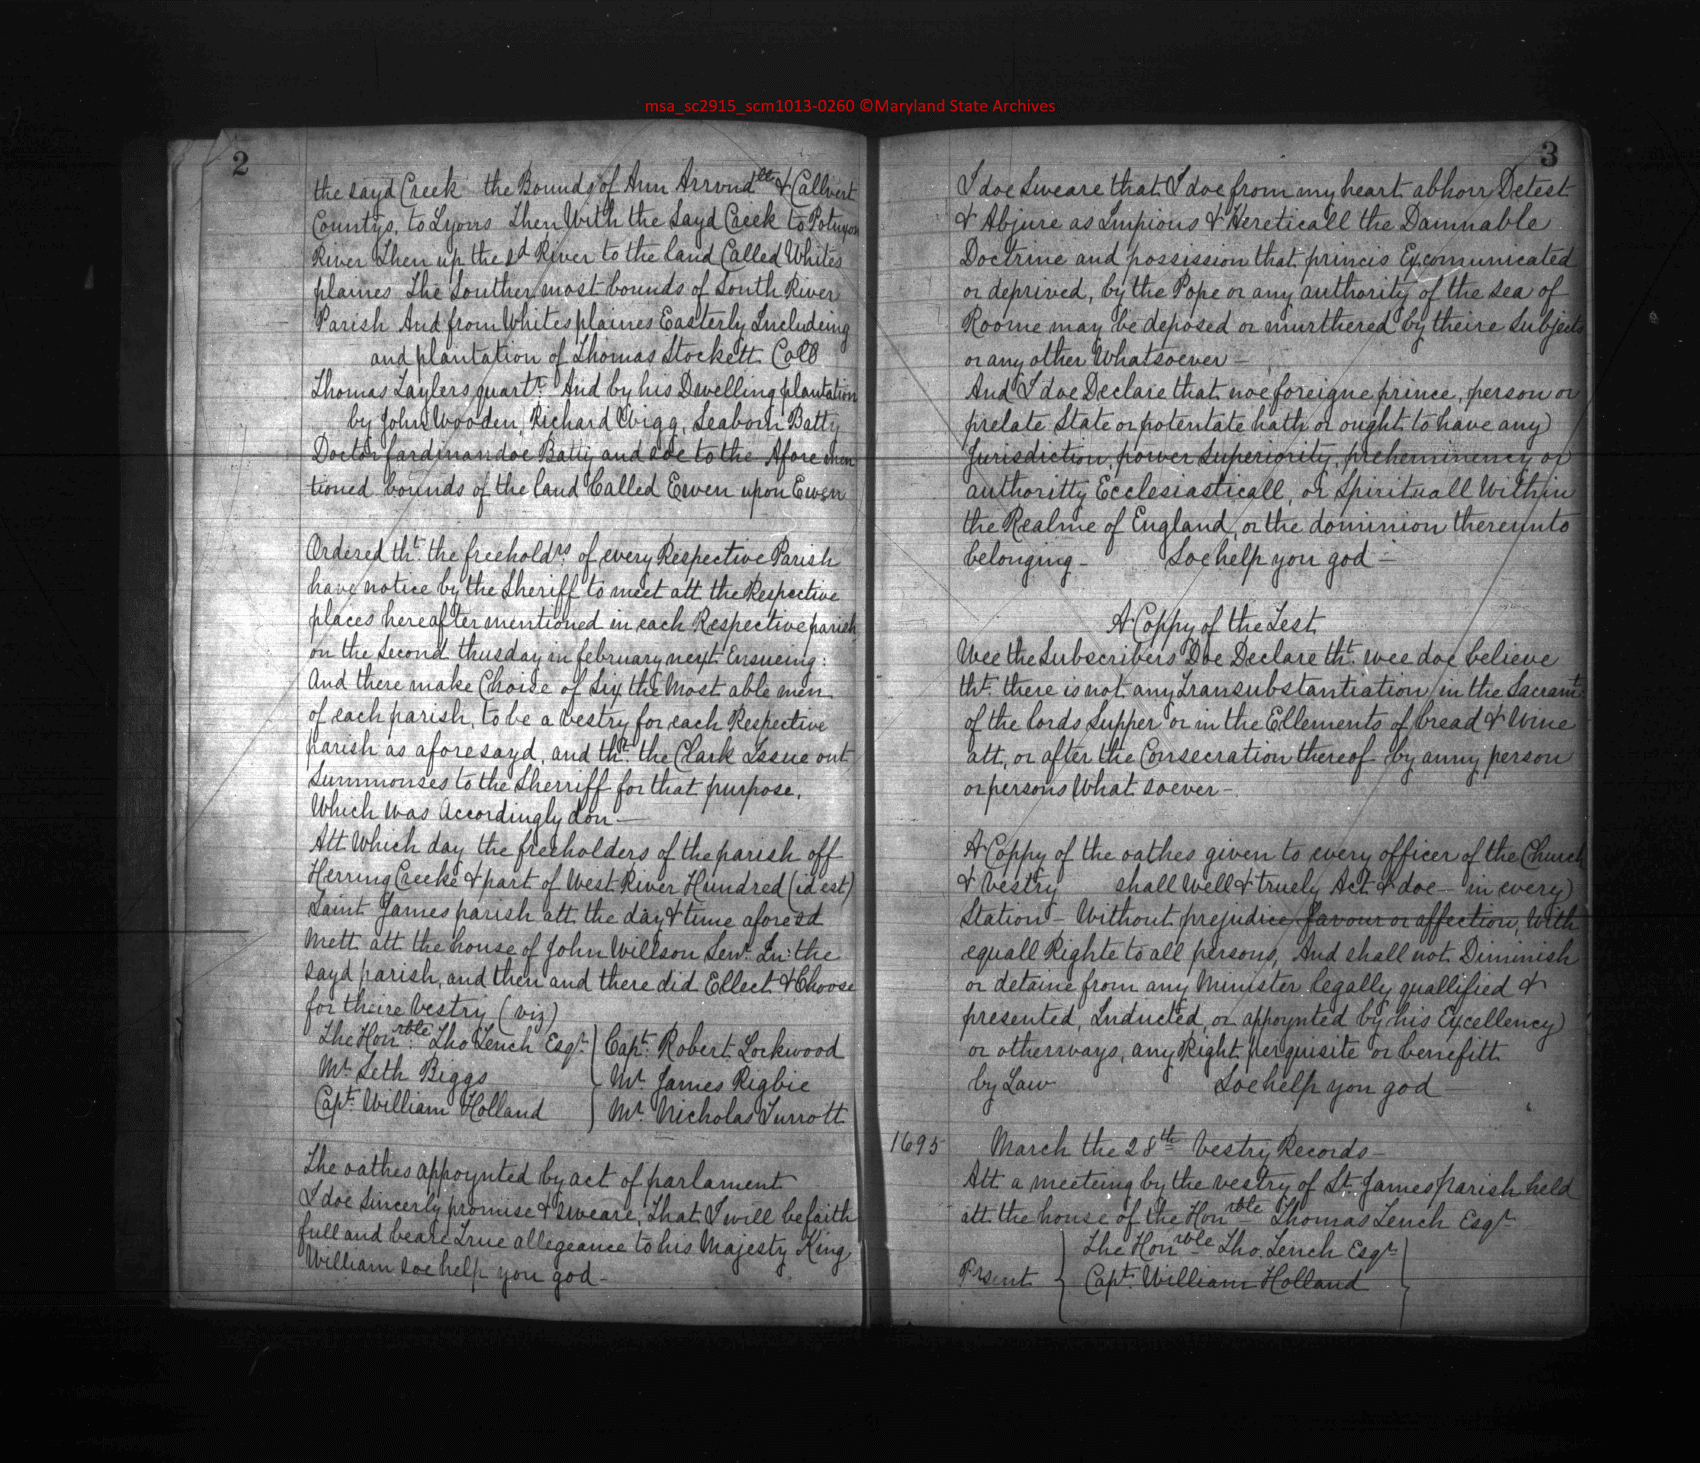 msa_sc2915_scm1013-0260 ©Maryland State Archives
2
the sayd Creek the Bounds of Ann Arrond^tle & Callvert
Countys, to Lyons Then With the Sayd Creek to Potuxon
River Then up the s^d River to the land Called Whites
plaines The Souther most bounds of South River
Parish And from Whites plaines Easterly Includeing
and plantation of Thomas Stockett Coll
Thomas Taylers quart^r. And by his Dwelling plantation
by John Wooden, Richard Wigg, Seaborn Batty
Doctor fardinandoe Batty and soe to the Afore men
tioned bounds of the land Called Ewen upon Ewen
Ordered th^t the freehold^rs of every Respective Parish
have notice by the Sheriff to meet att the Respective
places hereafter mentioned in each Respective parish
on the Second thusday in february next Ensueing:
And there make Choise of Six the Most able men
of each parish, to be a vestry for each Respective
parish as aforesayd, and th^t the Clark Issue out
Summonses to the Sherriff for that purpose.
Which was Accordingly don—
Att Which day the freeholders of the parish off
Herring Creeke & part of West River Hundred (id est)
Saint James parish att the day & time afores^d
Mett att the house of John Willson Sen^r. In: the
sayd parish, and then and there did Ellect & Choose
for theire Vestry (viz)
The Hon^rble. Tho Tench Esq^r. } Cap^t. Robert Lockwood
M^r. Seth Biggs } M^r. James Rigbie
Cap^t. William Holland } M^r. Nicholas Turrott
The oathes appoynted by act of parlament
I doe Sincerly promise & sweare, That I will be faith
full and beare True allegeance to his Majesty King
William soe help you god-
3
I doe Sweare that I doe from my heart abhorr Detest
& Abjure as Impious & Hereticall the Damnable
Doctrine and possission that princis Excomunicated
or deprived, by the Pope or any authority of the sea of
Roome may be deposed or murthered by theire Subjects
or any other Whatsoever—
And I doe Declare that noe foreigne prince, person or
prelate State or potentate hath or ought to have any
Jurisdiction, power Superiority, preheminency or
authoritty Ecclesiasticall, or Spirituall Within
the Realme of England, or the dominion thereunto
belonging- Soe help you god-
A Coppy of the Test
Wee the Subscribers Doe Declare th^t. wee doe believe
th^t. there is not any Transubstantiation in the Sacram^t.
of the lords Supper or in the Ellements of bread & Wine
att, or after the Consecration thereof by anny person
or persons What soever-.
A Coppy of the oathes given to every officer of the Church
& Vestry shall Well & truely Act & doe- in every
Station- Without prejudice favour or affection, With
equall Righte to all persons, And shall not Diminish
or detaine from any Minister legally quallified &
presented, Inducted, or appoynted by his Excellency
or otherways, any Right perquisite or benefitt
by Law Soe help you god
1695 March the 28^th Vestry Records-
Att a meeteing by the vestry of St. James parish held
att the house of the Hon^rble Thomas Tench Esq^r
The Hon^rble Tho. Tench Esq^r.
Prsent { Cap^t. William Holland }